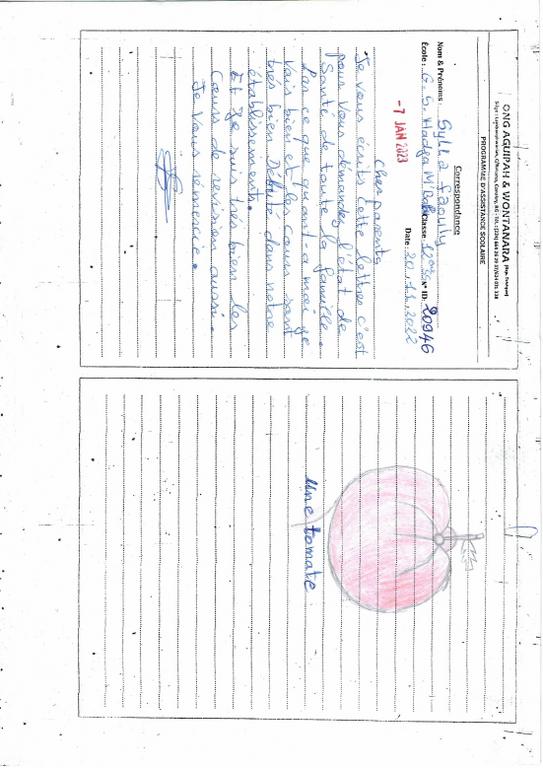 ONG AGUIPAH & WONTANARA
PROGRAMME D'ASSISTANCE SCOLAIRE
Correspondance
Nom & Prénoms: Sylla Facully
École: G.S. Hadja M'Bal Classe: 12ème N° ID: 20946
Date: 20.11.2022
-7 JAN 2023
Cher parents
Je vous écrits cette lettres c'est
pour vous demandez l'état de
Santé de toute la famille.
Par ce que quant-a moi je
vais bien et les cours sont
très bien Débuté dans notre
établissements.
Et Je suis très bien les
Cours de revision aussi.
Je Vous remercie.
Une tomate